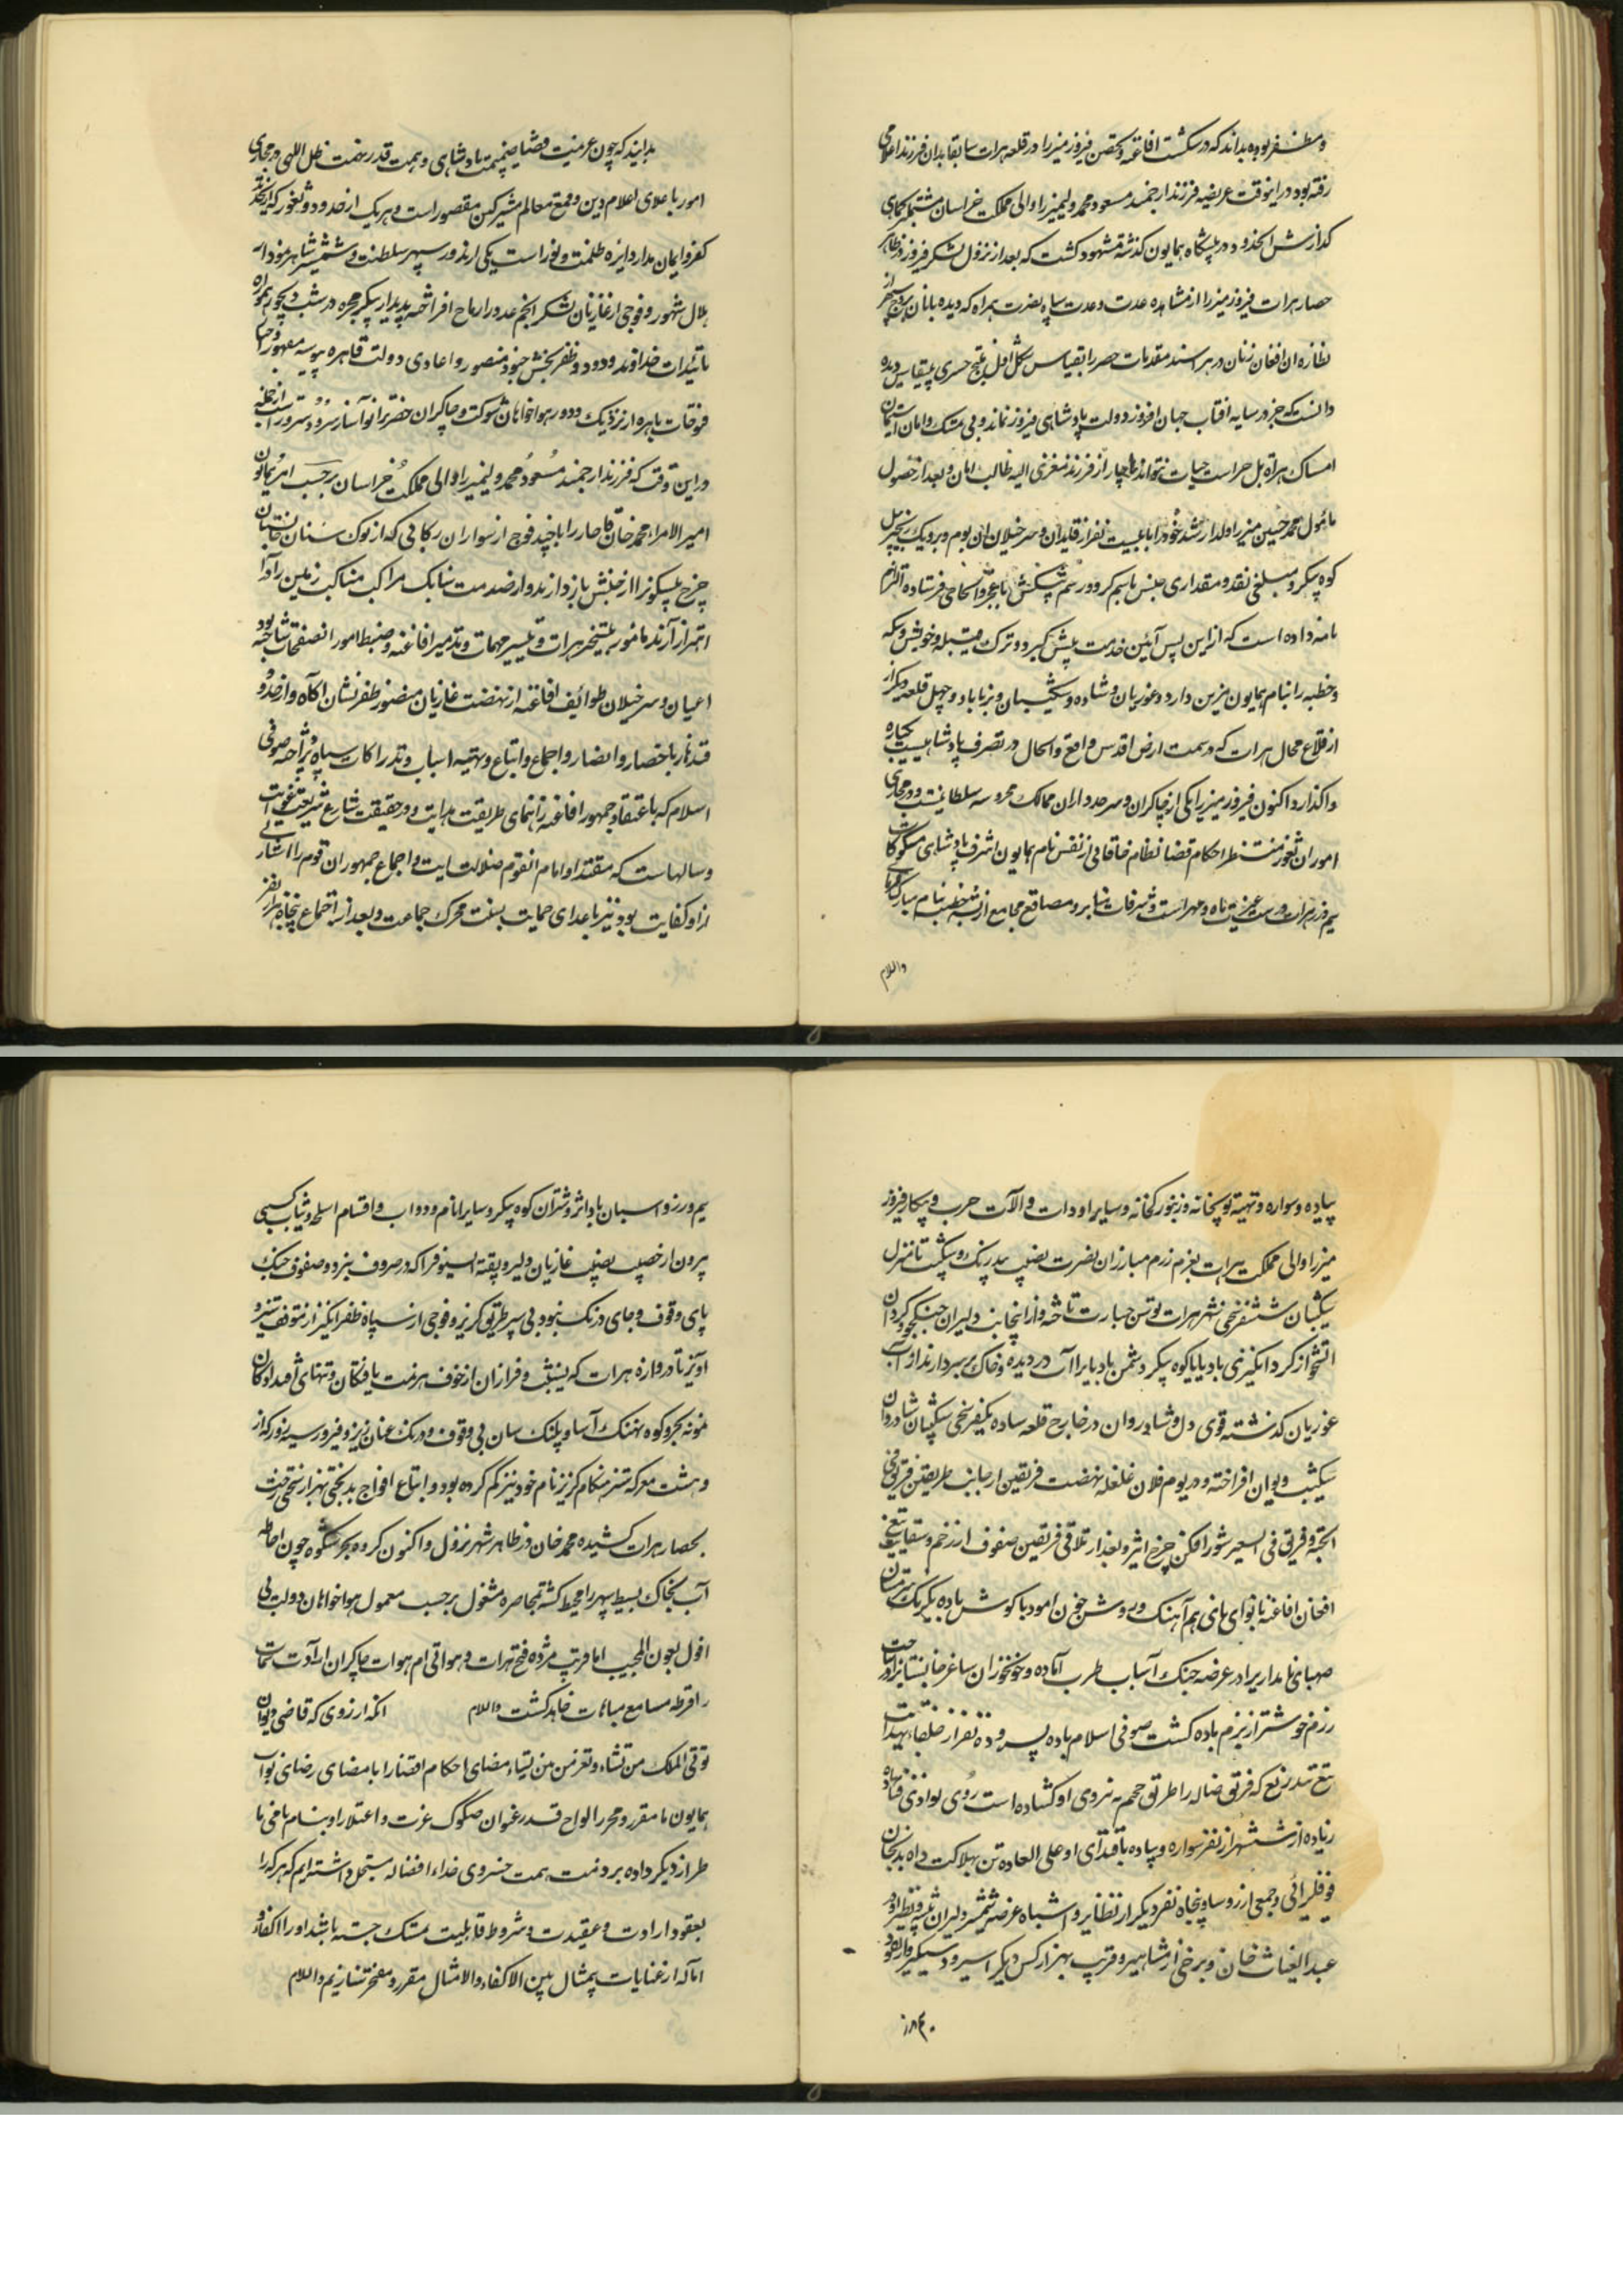 و مظفر بوده بداند که در شکست افاغنه و تحصن فیروز میرزا در قلعه هرات سابقا بدان فرزند اعلامی
رفته بود در اینوقت عریضه فرزند ارجمند مسعود محمد ولیمیرزا والی مملکت خراسان مشتمل بحکای
کذارش انحدود در پیشکاه همایون کذشته مشهود کشت که بعد از نزول لشکر فیروز در ظاهر
حصار هرات فیروز میرزا از مشاهده عدت و عدت سپاه نصرت همراه که دیده بانان بروج سپهر از
نظاره ان افغان زنان در هراسند مقدمات حصر را بقیاس شکل اول منتج خسری بیقیاس دیده
دانست که جز در سایه افتاب جهان افروز دولت پادشاهی فیروز نماند و بی تمسک دامان استیمان
امساک هراة بل حراست حیات نتواند ناچار از فرزند معزی الیه طالب امان و بعد از حصول
مامول محمد حسین میرزا ولد ارشد خود را با بیست نفر از قایدان و سر خیلان ان بوم و بر و یک زنجیر پیل
کوه پیکر و مبلغی نقد و مقداری جنس باسم کرو و رسم پیشکش با عجز و الحاحی فرستاده التزام
نامه داده است که از این پس آئین خدمت پیش کیرد و ترک قبیله و خویش و سکه
و خطبه را بنام همایون مزین دارد و غوریان و شاده و شکیبان و زیاباد و چهل قلعه دیگر از
از قلاع محال هرات که در سمت ارض اقدس واقع و الحال در تصرف پادشاهیست یکباره
واکذارد اکنون فیروز میرزا یکی از چاکران و سرحدداران ممالک محروسه سلطانیست و در مجاری
امور ان ثغور منتظر احکام قضا نظام خاقانی از نفس نام همایون اشرف پادشاهی مسکوکات
سیم و زر هرات غیرت ماه و مهر است و شرفات منابر و مصاقع مجامع از رتبه خطبه بنام مبارک
والسلام
بدانید که چون عزیمت قضا صمیمت پادشاهی و همت قدر نهمت ظل اللهی در مجاری
امور باعلای اعلام دین و قمع معالم مشرکین مقصور است و هر یک از حدود و ثغور که
کفر و ایمان مدار دایره ظلمت و نور است یکی ارند ور سپهر سلطنت و شمشیر شاهر نمودار
هلال شهور و فوجی از غازیان لشکر انجم عدد را رماح افراخته پدیدار پیکر مجره در شب دیجور همواره
بتائیدات خداوند ودود و ظفر بخش جنود منصور و اعادی دولت قاهره پیوسته مقهور و
فتوحات باهره از نزدیک و دور هواخواهان شوکت و چاکران حضرت را نوا ساز سرود و سرور است از جمله
در این وقت که فرزند ارجمند مسعود محمد ولیمیرزا والی مملکت خراسان بر حسب امر همایون
امیر الامراء محمد خان قاجار را با چند فوج از سواران رکابی که از نوک سنان
چرخ نیلگون را از جنبش باز دارند و از صدمت سنابک مراکب مناکب زمین را
اهتزاز آرند مامور بتسخیر هرات و تیسیر مهمات و تدمیر افاغنه و ضبط امور انصفحات ساخته بود
اعیان و سر خیلان طوائف افاغنه از نهضت غازیان منصور ظفر نشان اکاه و از حدود
قندهار باحضار و انصار و اجماع و اتباع و تهیه اسباب و تدارکات سپاه پرداخته صوفی
اسلام که باعتقاد جمهور افاغنه راهنمای طریقت هدایت و در حقیقت شارع شریعت غوایت
و سالهاست که مقتدا و امام انقوم ضلالت ایت و اجماع جمهور ان قوم را اشارتی
از او کفایت بود نیز باعدای حمایت بسنت محرک جماعت و بعد از اجتماع پنجاه هزار نفر
پیاده و سواره و تهیه توپخانه و زنبورکخانه و سایر ادوات و آلات حرب و پیکار فیروز
میرزا والی مملکت هرات بعزم رزم مبارزان نصرت نصیب بیدرنک و شکیب تا منزل
شکیبان ششفرسخی شهر هرات توسن جسارت تاخته و از اینجانب دلیران جنکجو و کردان
اتشخو از کرد انکیزی بادپایان کوه پیکر دشمن بادپیما را آب در دیده و خاک بر سر دارند از آب
غوریان کذشته قوی دل و شادروان در خارج قلعه شاده یکفرسخی شکیبان شادروان
شکیب و توان افراخته و در یوم فلان غلغله نهضت فریقین از جانب طریقین فریق فی
الجنة و فریق فی السعیر شور افکن چرخ اثیر و بعد از تلاقی فریقین صفوف از زخم
افغان افاغنه با نوای نای هم آهنک و روش خون امود با کوش باده یکرنک
صهبای نامداریرا در عرصه جنک اسباب طرب آماده و خونخواران ساغر جانبستانیرا ساحت
رزم خوشتر از بزم باده کشت صوفی اسلام باده پسر و ده نفر از خلفاء بهدایت
تیغ بیدریغ که فرق ضاله را طریق جحیم به نیروی او کشاده است روی بوادی نهاده
زیاده از ششهزار نفر سواره و پیاده باقتدای او علی العاده تن بهلاکت داده بدیخان
فوفلزائی و جمعی از رؤسا و پنجاه نفر دیکر از نظایر و اشباه عرضه شمشیر دلیران شیر نظیر و
عبد الغیاث خان و برخی از مشاهیر و قریب بهزار کس دیکر اسیر و دستکیر و از نقود
سیم و زر
سیم و زر و اسبان باد اثر و شتران کوه پیکر و سایر انعام و دواب و اقسام اسلحه و ثیاب کسبی
بیرون از حصر نصیب غازیان دلیر و بقیة السیوف را که در صروف نبرد و صفوف جنک
پای وقوف و جای درنک نبود پی سپر طریق کریز و فوجی از سپاه ظفر انکیز از متوقف ستیز و
آویز تا دروازه هرات که بنشیب و فراز ان از خوف هزیمت یافتکان و تنهای
نمونه بحر و کوه نهنک آسا و پلنک سان بی وقوف و درنک عنان ریز و فیروز سیه روز که از
دهشت معرکه ستیز هنکام کریز نام خود نیز کم کرده بود و اتباع افواج بدبختی بهزار سختی رخت
بحصار هرات کشیده محمد خان در ظاهر شهر نزول و اکنون کروه بحر شکوه چون احاطه
آب بخاک بسیط سپهر را محیط کشته بمحاصره مشغول بر حسب معمول هواخواهان دولت بی
افول بعون المجیب اما قریب مژده فتح هرات و هواتی ام هوات چاکران ارادت سمات
را قرطه مسامع مباهات خواهد کشت والسلام انکه از روزی که قاضی دیوان
تؤتی الملک من تشاء و تعز من تشاء مضای احکام اقتدار را بامضای رضای نواب
همایون ما مقرر و محرر الواح قدر عنوان صکوک عزت و اعتلا را بنام نامی ما
طراز دیکر داده بر ذمت همت خسروی خداء افضاله مسجل داشته ایم که هر که را
بعقود ارادت و عقیدت و شروط قابلیت تمسک جسته باشد او را اکفاء و
امآله از عنایات بیمثال بین الاکفاء و الامثال مقرر و مفتخر سازیم والسلام